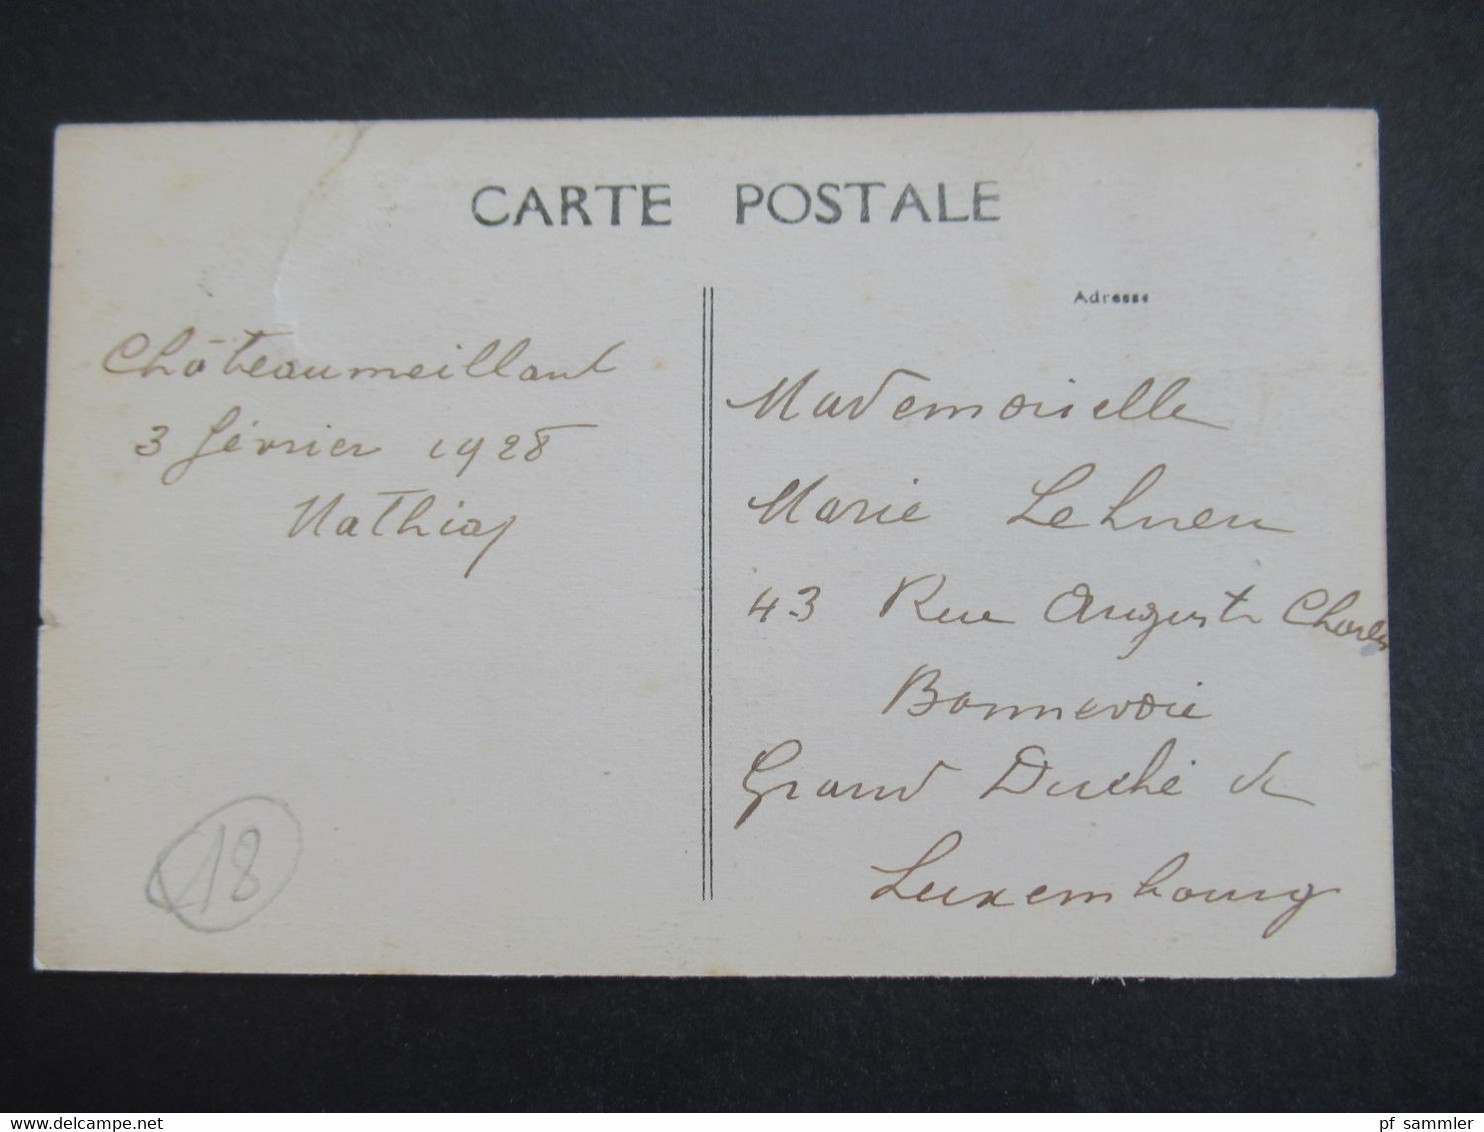 CARTE POSTALE
Adresse
Châteaumeillant
3 février 1928
Mathias
Mademoiselle
Marie Lehnen
43 Rue Auguste Charles
Bonnevoie
Grand Duché de
Luxembourg
18
www.delcampe.net
pf_sammler